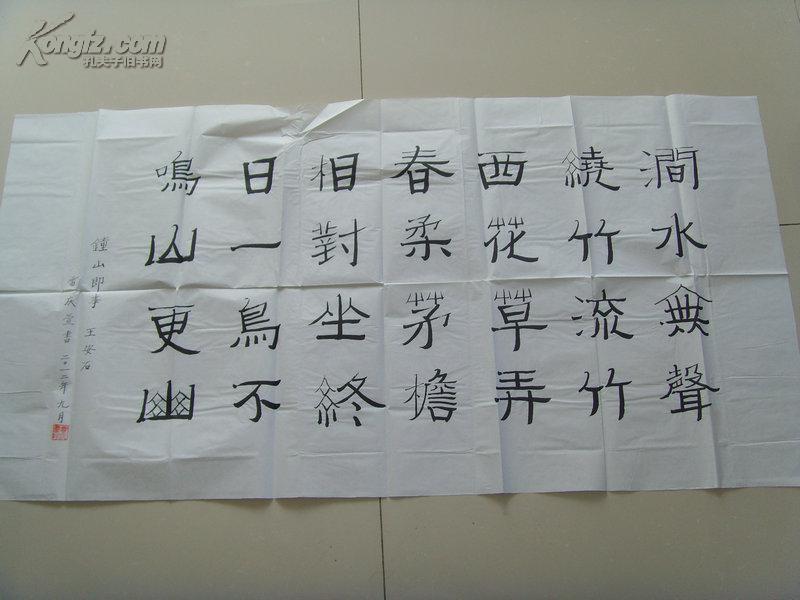 Kongfz.com
孔夫子旧书网
澗水無聲
繞竹流竹
西花草弄
春柔茅檐
相對坐終
日一鳥不
鳴山更幽
鐘山即事 王安石
書 二〇一二年九月